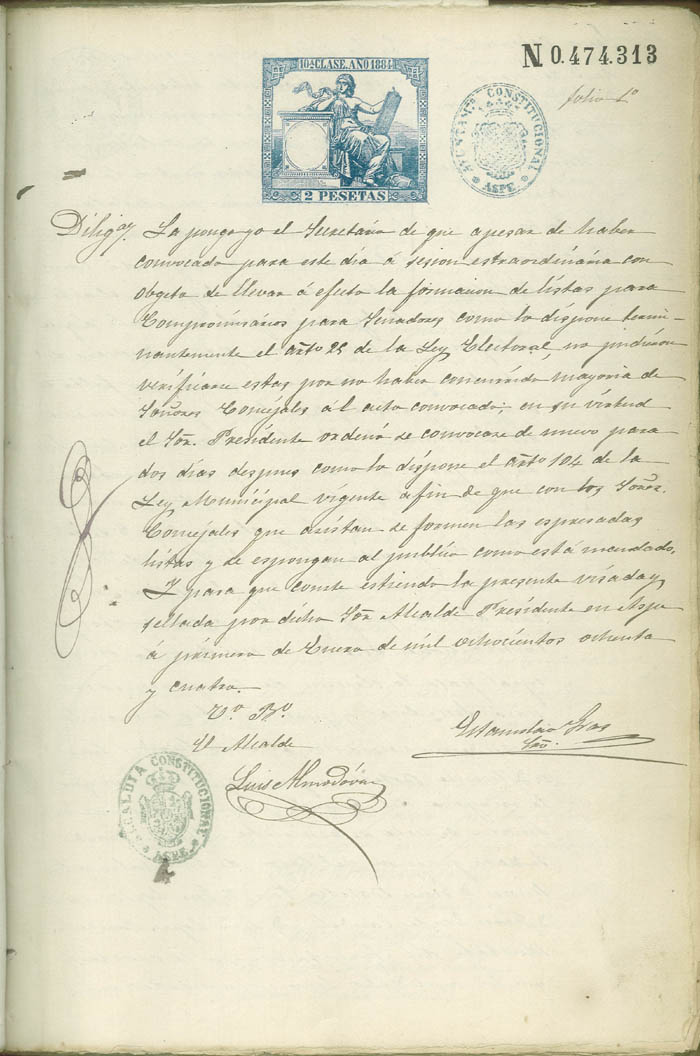 10ª CLASE. AÑO 1884
2 PESETAS
N 0.474.313
AYUNTAMTO CONSTITUCIONAL
ASPE.
folio 1º
Diligª. La pongo yo el Secretario de que apesar de haber
convocado para este dia á sesion extraordinaria con
obgeto de llevar á efecto la formacion de listas para
Compromisarios para Senadores como lo dispone termi-
nantemente el artº 25 de la Ley Electoral, no pudieron
verificarse estas por no haber concurrido mayoria de
Señores Concejales al acto convocado; en su virtud
el Sor. Presidente ordenó se convocase de nuevo para
dos dias despues como lo dispone el artº 104 de la
Ley Municipal vigente afin de que con los Señres.
Concejales que asistan se formen las espresadas
listas y se espongan al publico como está mandado.
Y para que conste estiendo la presente visada y
sellada por dicho Sor Alcalde Presidente en Aspe
á primero de Enero de mil ochocientos ochenta
y cuatro.
Vº. Bº.
El Alcalde
Estanislao Gras
Srio.
Luis Almodóvar
ALCALDIA CONSTITUCIONAL
ASPE.